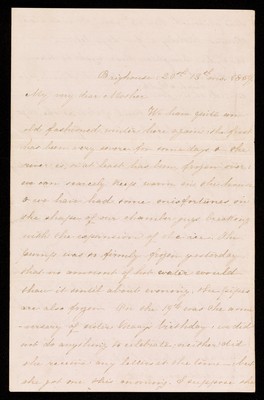 Brighouse 20th 12th mo 1859
My very dear Mother
We have quite an
old fashioned winter here again the frost
has been very severe for some days & the
river is, or at least has been frozen over,
we can scarcely keep warm in
& we have had some misfortunes in
the shape of our chamber jugs breaking
with the expansion of the ice. The
pump was so firmly frozen yesterday
that no amount of hot water would
thaw it until about evening, the pipes
are also frozen. On the 19th was the
anniversary of sister Mary's birthday we did
not do anything to celebrate neither did
she receive any letters at the time but
she got one this morning. I suppose she